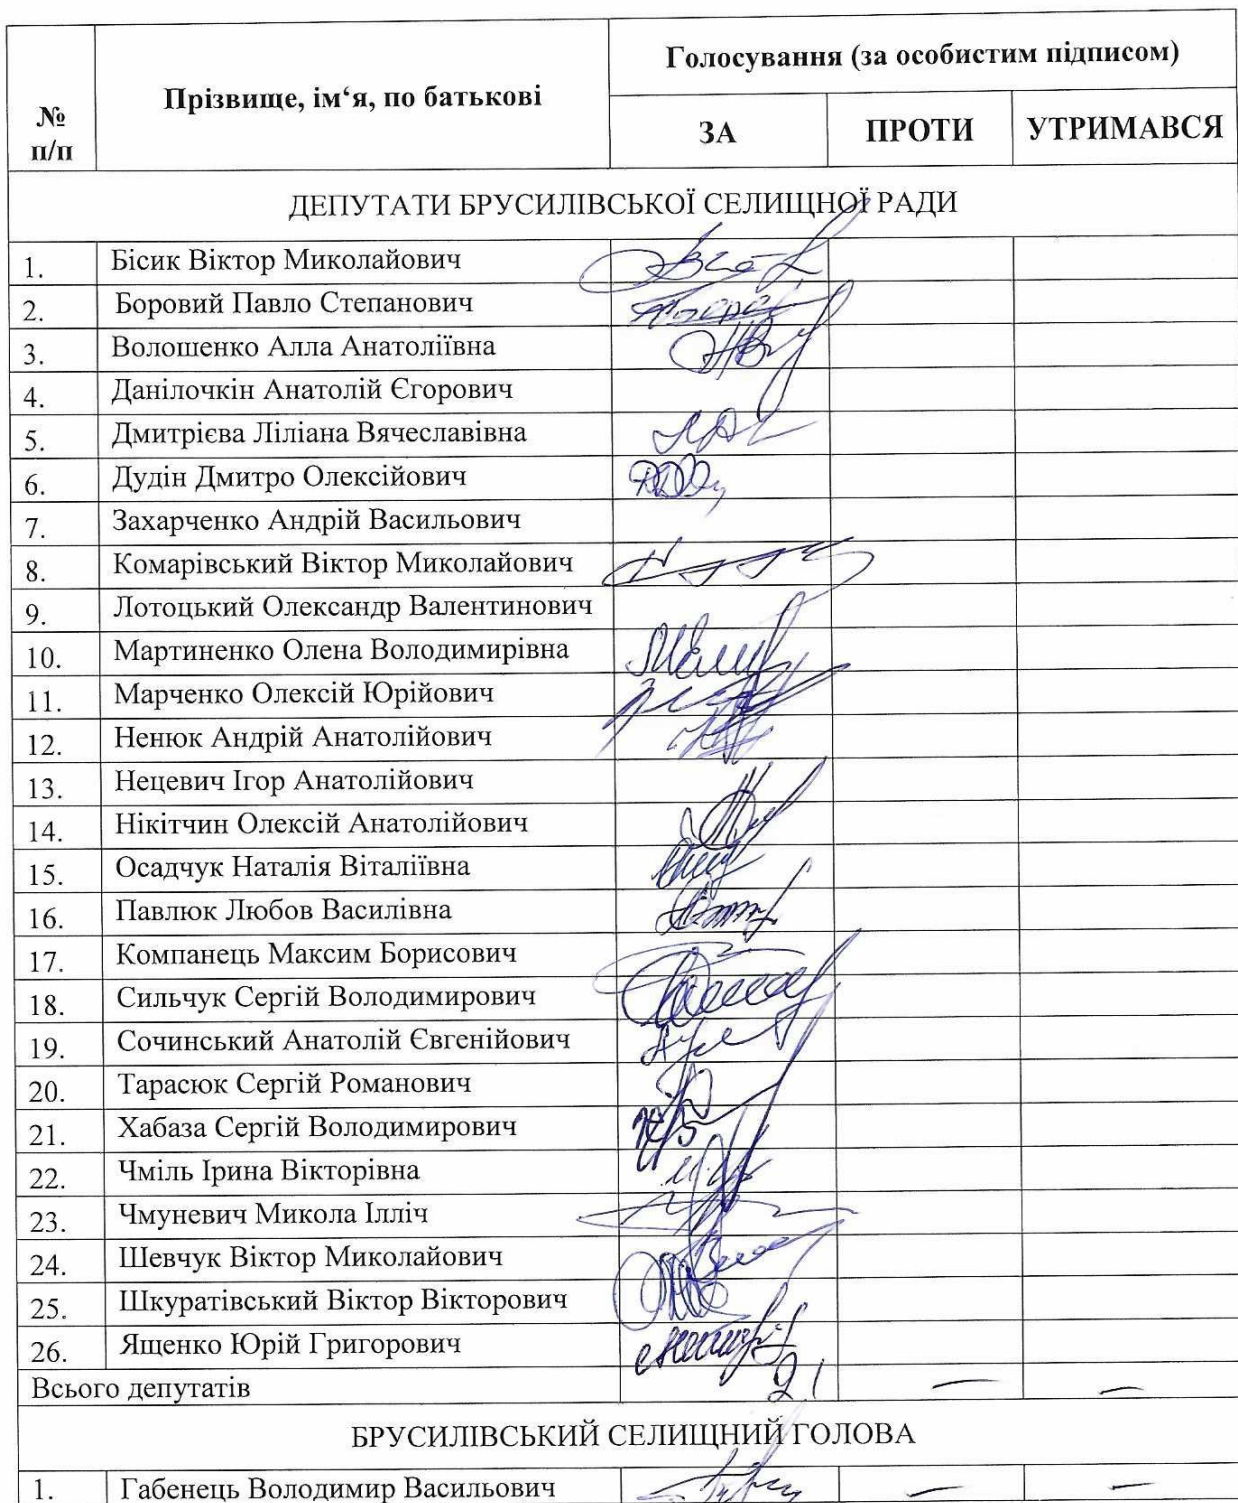 № п/п
Прізвище, ім‘я, по батькові
Голосування (за особистим підписом)
ЗА
ПРОТИ
УТРИМАВСЯ
ДЕПУТАТИ БРУСИЛІВСЬКОЇ СЕЛИЩНОЇ РАДИ
1. Бісик Віктор Миколайович
2. Боровий Павло Степанович
3. Волошенко Алла Анатоліївна
4. Данілочкін Анатолій Єгорович
5. Дмитрієва Ліліана Вячеславівна
6. Дудін Дмитро Олексійович
7. Захарченко Андрій Васильович
8. Комарівський Віктор Миколайович
9. Лотоцький Олександр Валентинович
10. Мартиненко Олена Володимирівна
11. Марченко Олексій Юрійович
12. Ненюк Андрій Анатолійович
13. Нецевич Ігор Анатолійович
14. Нікітчин Олексій Анатолійович
15. Осадчук Наталія Віталіївна
16. Павлюк Любов Василівна
17. Компанець Максим Борисович
18. Сильчук Сергій Володимирович
19. Сочинський Анатолій Євгенійович
20. Тарасюк Сергій Романович
21. Хабаза Сергій Володимирович
22. Чміль Ірина Вікторівна
23. Чмуневич Микола Ілліч
24. Шевчук Віктор Миколайович
25. Шкуратівський Віктор Вікторович
26. Ященко Юрій Григорович
Всього депутатів 21 — —
БРУСИЛІВСЬКИЙ СЕЛИЩНИЙ ГОЛОВА
1. Габенець Володимир Васильович — —